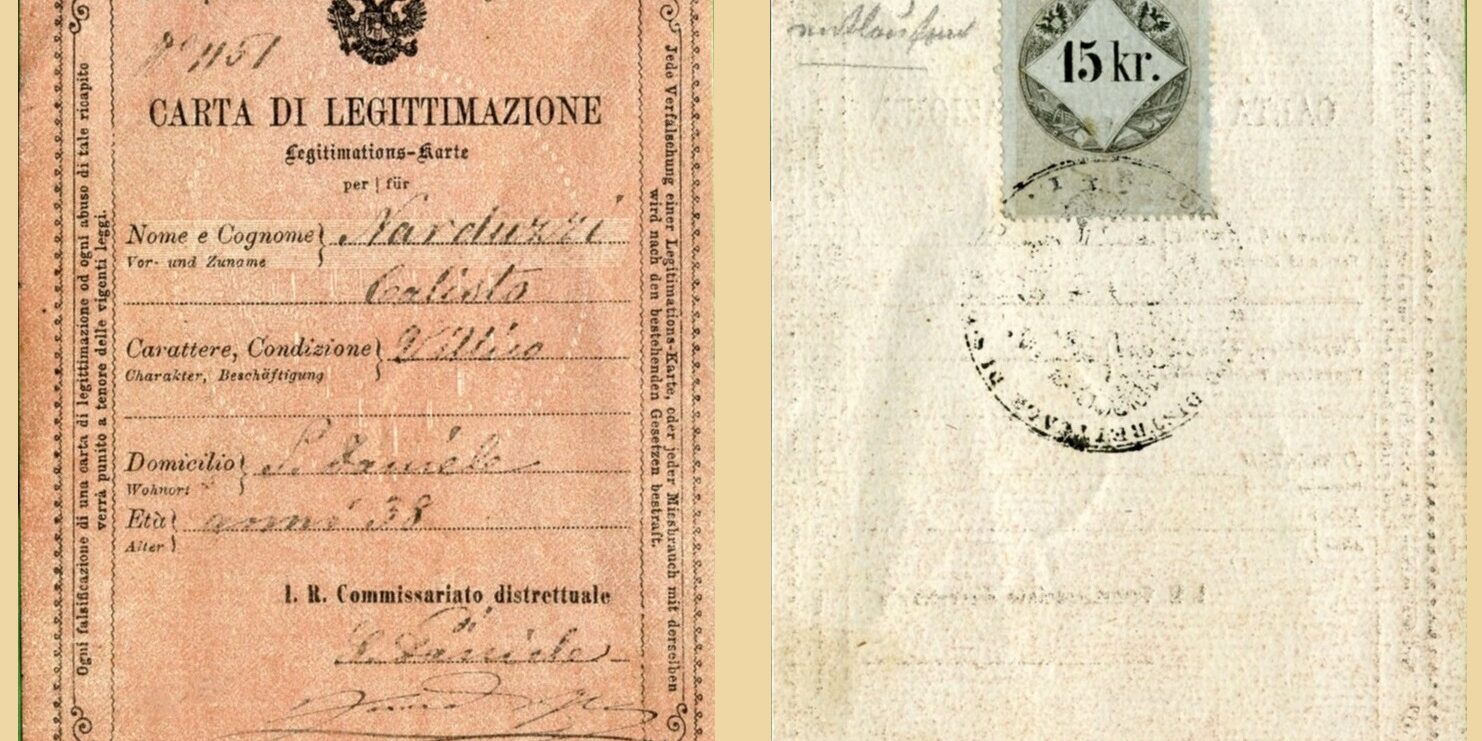 Nº 1151
CARTA DI LEGITTIMAZIONE
Legitimations-Karte
per | für
Nome e Cognome Narduzzi
Vor- und Zuname
Calisto
Carattere, Condizione Villico
Charakter, Beschäftigung
Domicilio S. Daniele
Wohnort
Età anni 38
Alter
I. R. Commissariato distrettuale
S. Daniele
Ogni falsificazione di una carta di legittimazione od ogni abuso di tale ricapito
verrà punito a tenore delle vigenti leggi.
Jede Verfalschung einer Legitimations-Karte, oder jeder Missbrauch mit derselben
wird nach den bestehenden Gesetzen bestraft.
15 kr.